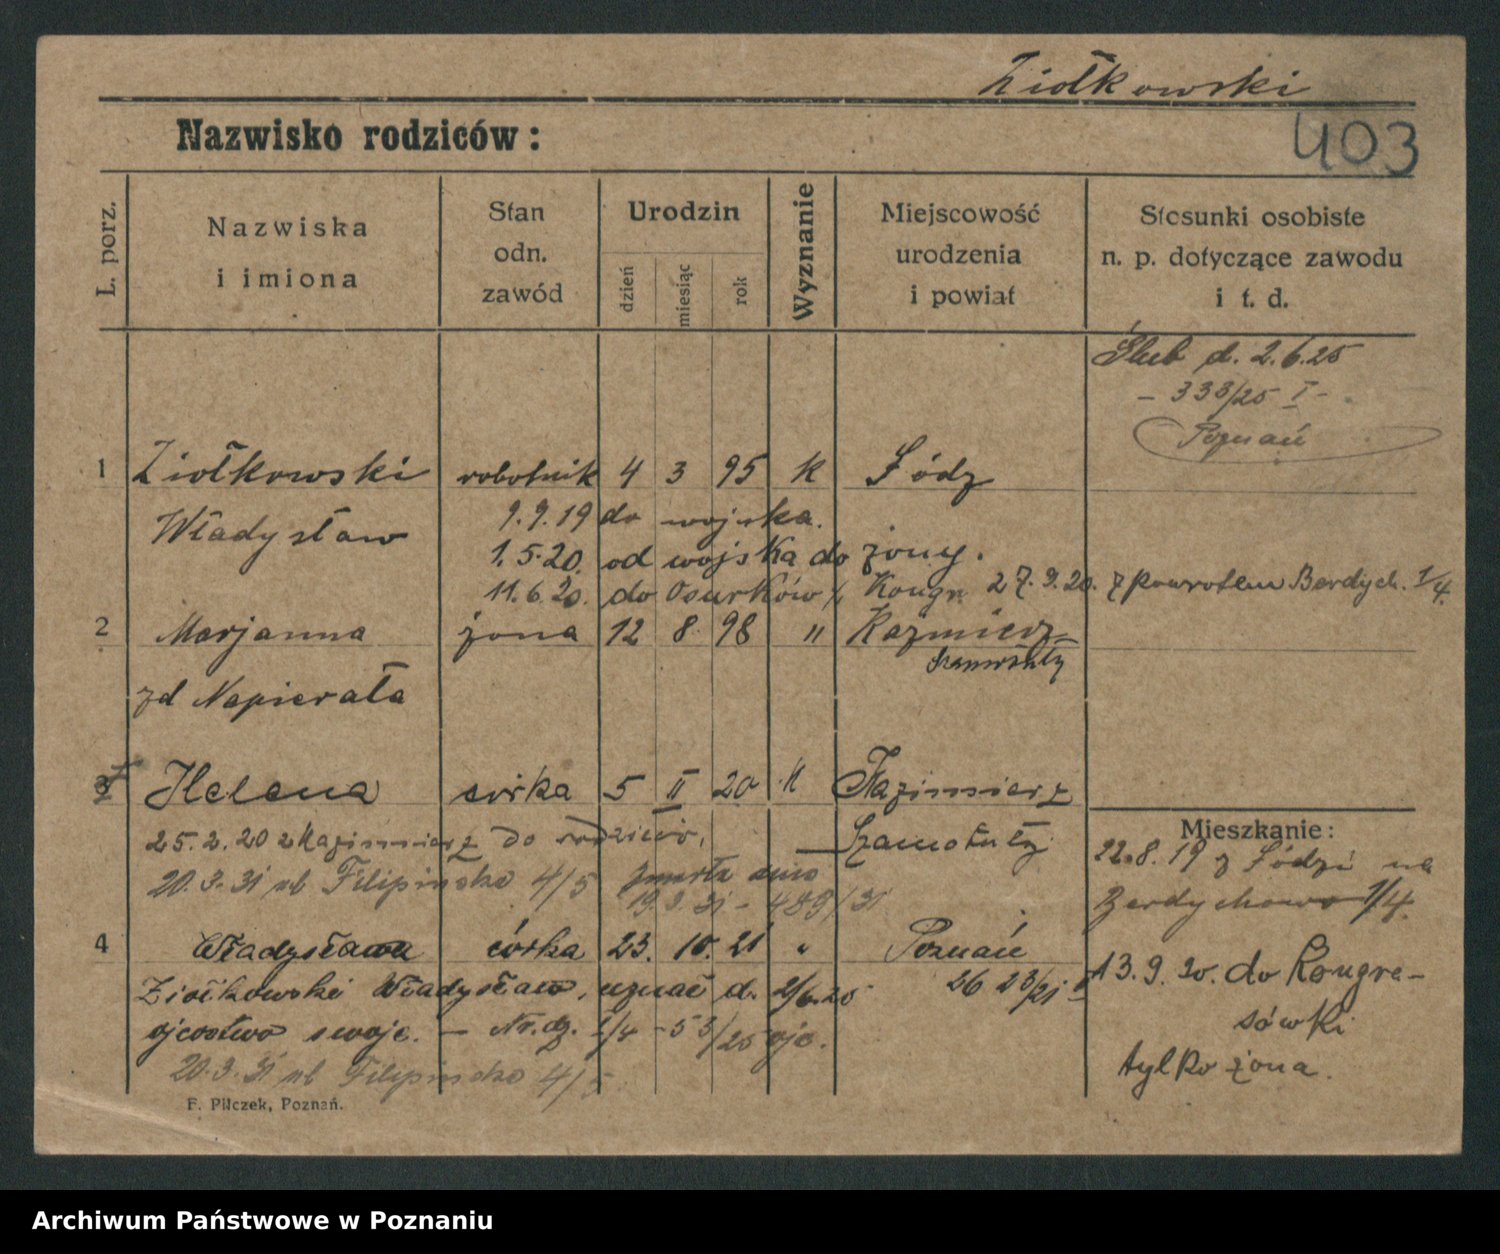 Ziołkowski
Nazwisko rodziców:
403
L. porz.
Nazwiska
i imiona
Stan
odn.
zawód
Urodzin
dzień
miesiąc
rok
Wyznanie
Miejscowość
urodzenia
i powiat
Stosunki osobiste
n. p. dotyczące zawodu
i t. d.
Ślub d. 2.6.25
- 333/25 I -
Poznań
1 Ziołkowski robotnik 4 3 95 k Łódz
Władysław 9.9.19 do wojska.
1.5.20. od wojska do żony.
11.6.20. do Osurków Kongr. 27.9.20. z powrotem Berdych. 1/4.
2 Marjanna żona 12 8 98 " Kaźmierz
Szamotuły
zd Napierała
3 Helena córka 5 II 20 k Kazimierz
25.2.20 z Kazimierz do rodziców. Szamotuły
Mieszkanie:
22.8.19 z Łódzi na
Berdychowo 1/4.
20.3.31 ub Filipińska 4/5 zmarła dnia
19.3.31 - 489/31
4 Władysława córka 23. 10. 21 " Poznań
26 23/21 II
Ziołkowski Władysław, uznał d. 2/6.25
ojcostwo swoje. - Nr. dz. I/4 - 53/25 ojc.
20.3.31 ub Filipińska 4/5
13.9.20. do Kongre-
sówki
tylko żona.
F. Pilczek, Poznań.
Archiwum Państwowe w Poznaniu